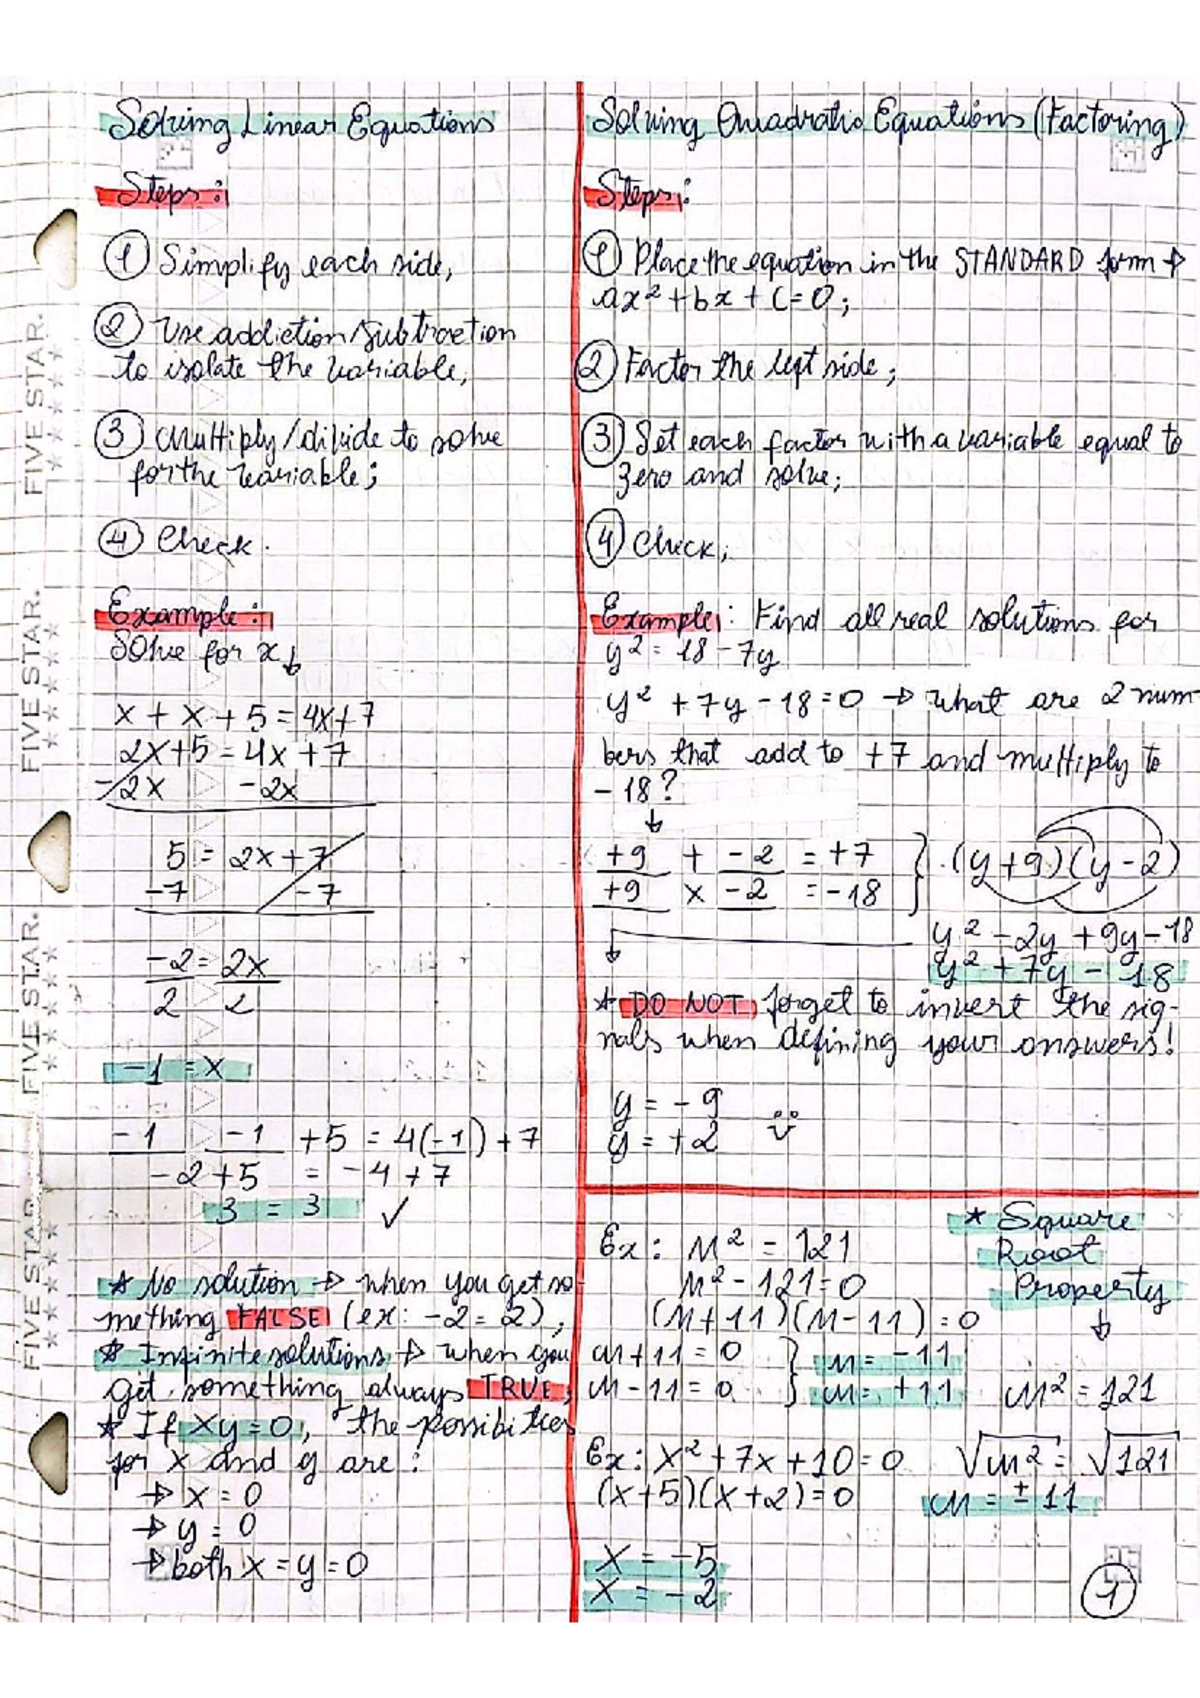 Solving Linear Equations
Steps:
① Simplify each side,
② Use addiction/subtraction
to isolate the variable,
③ Multiply/divide to solve
for the variable;
④ Check.
Example:
Solve for x↓
x + x + 5 = 4x + 7
2x + 5 = 4x + 7
-2x -2x
5 = 2x + 7
-7 -7
-2 = 2x
2 2
-1 = x
-1 -1 + 5 = 4(-1) + 7
-2 + 5 = -4 + 7
3 = 3 ✓
* No solution → when you get so-
mething FALSE (ex: -2 = 2),
* Infinite solutions → when you
get something always TRUE;
* If xy = 0, the possibities
for x and y are:
→ x = 0
→ y = 0
→ both x = y = 0
Solving Quadratic Equations (Factoring)
Steps:
① Place the equation in the STANDARD form →
ax² + bx + c = 0;
② Factor the left side;
③ Set each factor with a variable equal to
zero and solve;
④ Check;
Example: Find all real solutions for
y² = 18 - 7y
y² + 7y - 18 = 0 → what are 2 num-
bers that add to +7 and multiply to
-18?
↓
+9 + -2 = +7
+9 x -2 = -18
(y + 9)(y - 2)
y² - 2y + 9y - 18
y² + 7y - 18
* DO NOT forget to invert the sig-
nals when defining your answers!
y = -9
y = +2
Ex: m² = 121
m² - 121 = 0
(m + 11)(m - 11) = 0
m + 11 = 0 } m = -11
m - 11 = 0 } m = +11
Ex: x² + 7x + 10 = 0
(x + 5)(x + 2) = 0
x = -5
x = -2
* Square
Root
Property
↓
m² = 121
√m² = √121
m = ± 11
1
FIVE STAR.
FIVE STAR.
FIVE STAR.
FIVE STAR